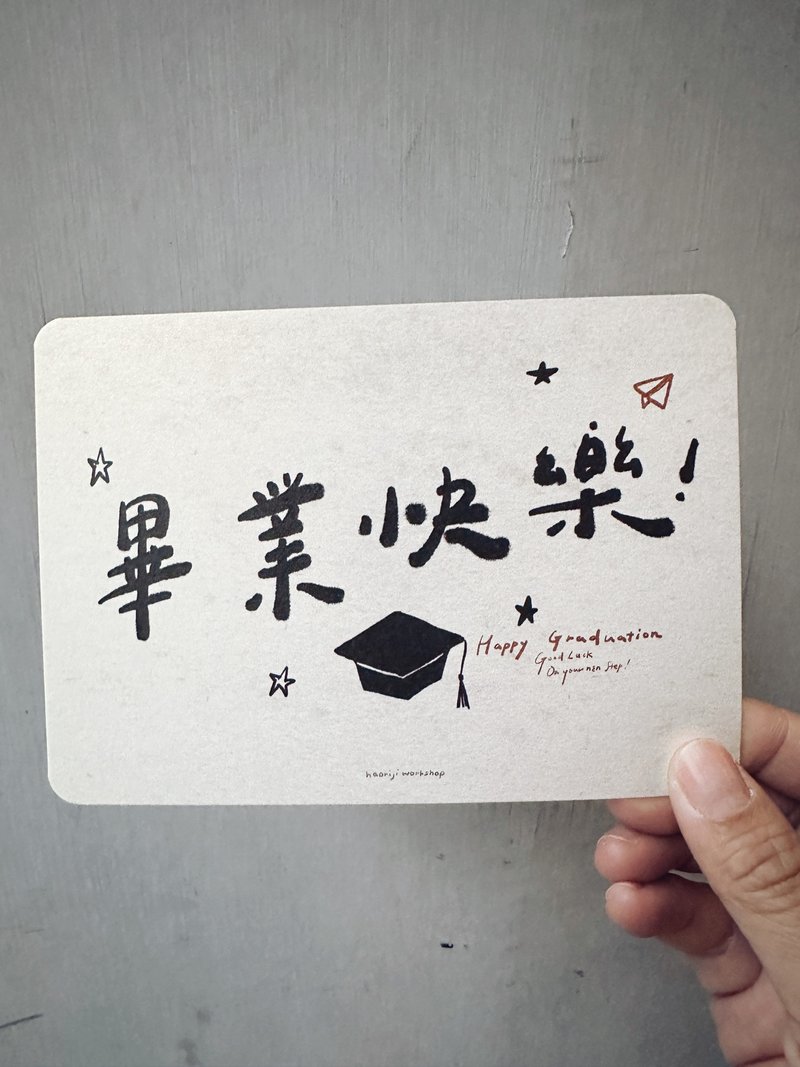 畢業快樂!
Happy Graduation
Good Luck
On your nen step!
haoriji workshop